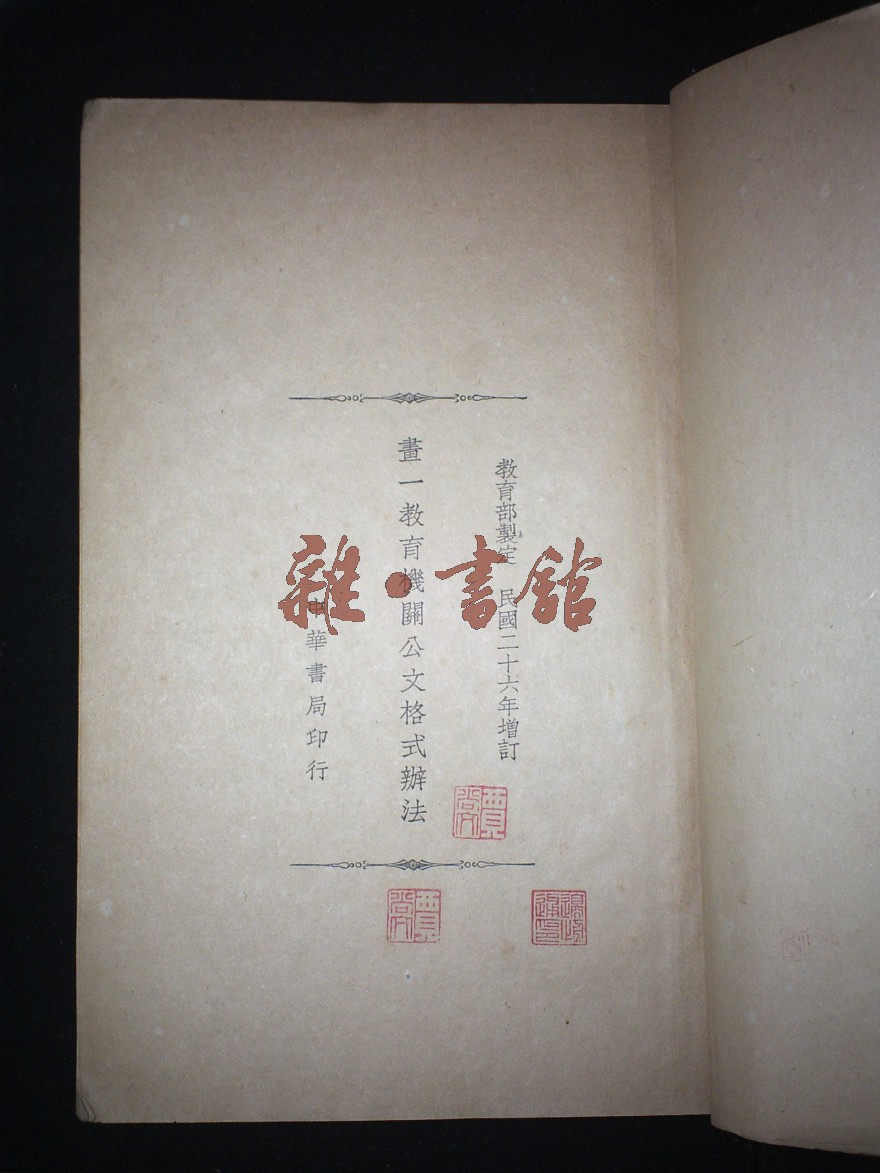 教育部製定　民國二十六年增訂
畫一教育機關公文格式辦法
中華書局印行
雜·書館